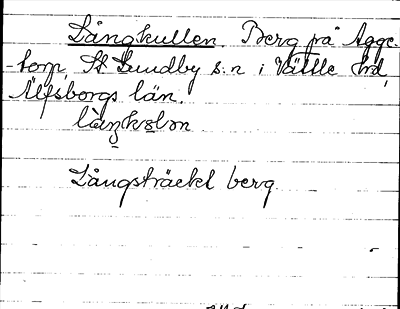 Långkullen. Berg på Agge-
-torp, St Lundby s:n i Vättle hd,
Älfsborgs län.
Långsträckt berg.